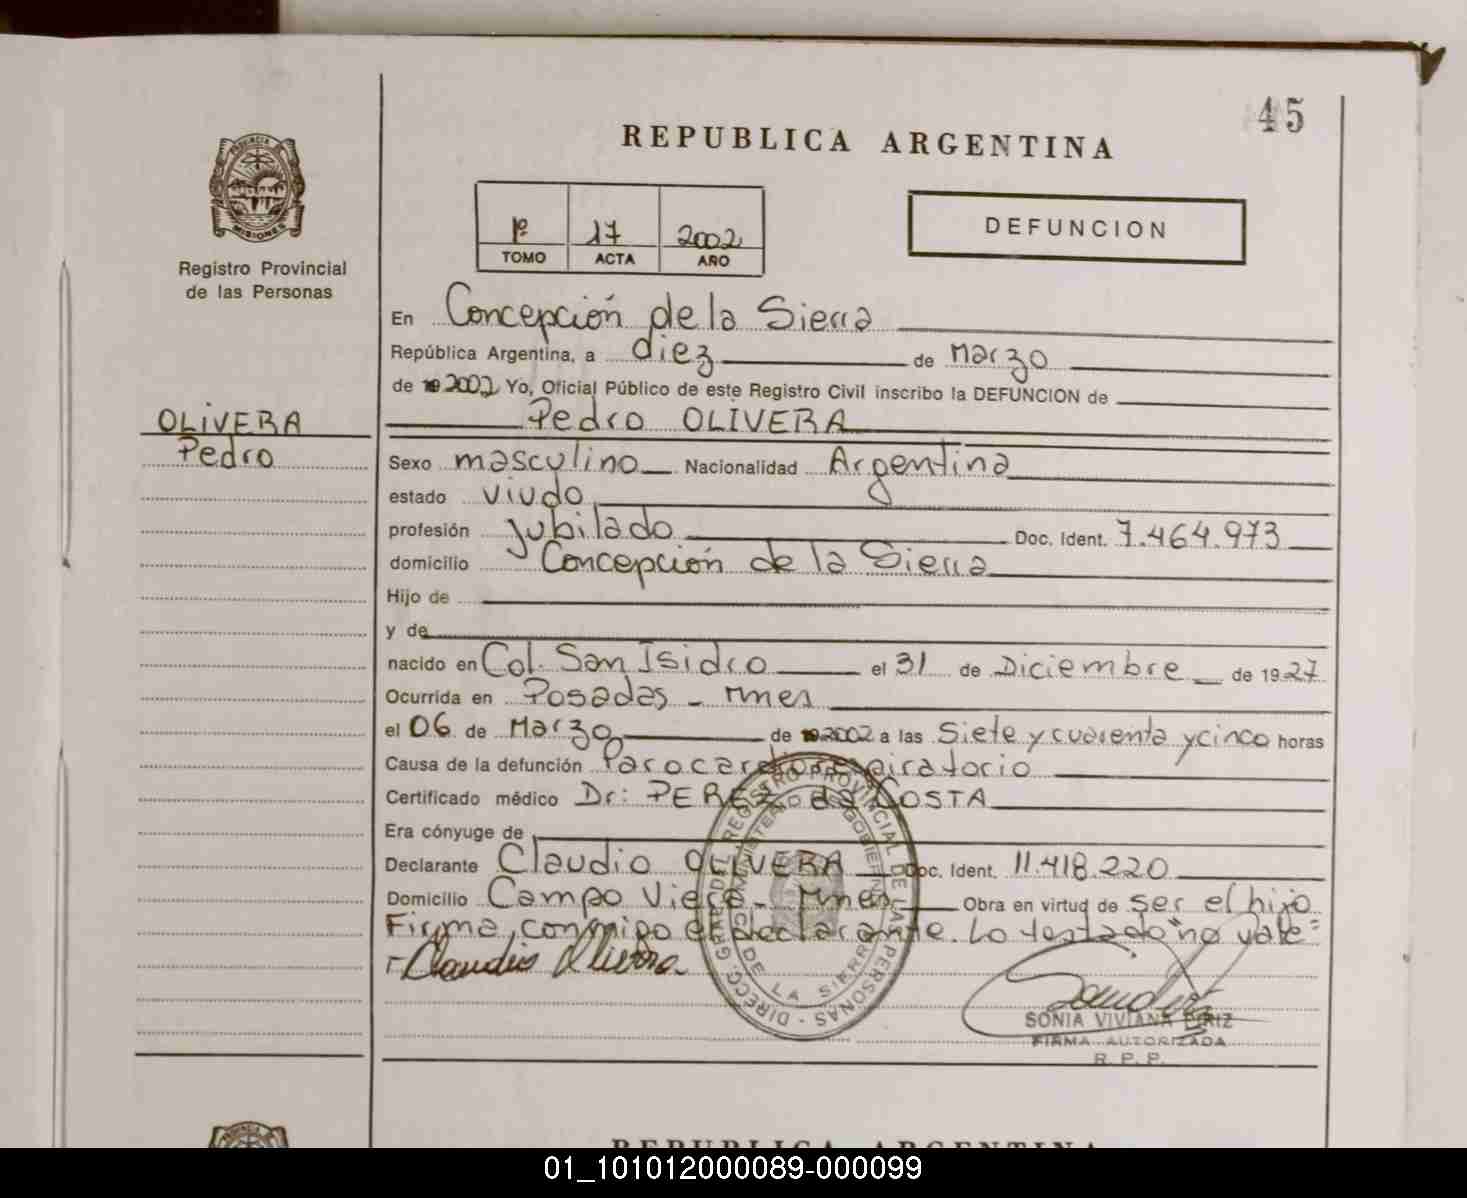 45
REPUBLICA ARGENTINA
PROVINCIA DE
MISIONES
Registro Provincial
de las Personas
1º 17 2002
TOMO ACTA AÑO
DEFUNCION
En Concepción de la Sierra
República Argentina, a diez de Marzo
de 19 2002 Yo, Oficial Público de este Registro Civil inscribo la DEFUNCION de
OLIVERA
Pedro
Pedro OLIVERA
Sexo masculino Nacionalidad Argentina
estado viudo
profesión jubilado Doc. Ident. 7.464.973
domicilio Concepción de la Sierra
Hijo de
y de
nacido en Col. San Isidro el 31 de Diciembre de 1927
Ocurrida en Posadas - Mnes
el 06 de Marzo de 19 2002 a las Siete y cuarenta y cinco horas
Causa de la defunción Parocardiorespiratorio
Certificado médico Dr: PEREZ da COSTA
Era cónyuge de
Declarante Claudio OLIVERA Doc. Ident. 11.418.220
Domicilio Campo Viera - Mnes Obra en virtud de ser el hijo
Firma conmigo el declarante. Lo testado "no vale"
Claudio Olivera
DIRECC. GRAL. DEL REGISTRO PROVINCIAL DE LAS PERSONAS
MINISTERIO DE GOBIERNO
DE LA SIERRA
SONIA VIVIANA PIRIZ
FIRMA AUTORIZADA
R. P. P.
REPUBLICA ARGENTINA
01_101012000089-000099